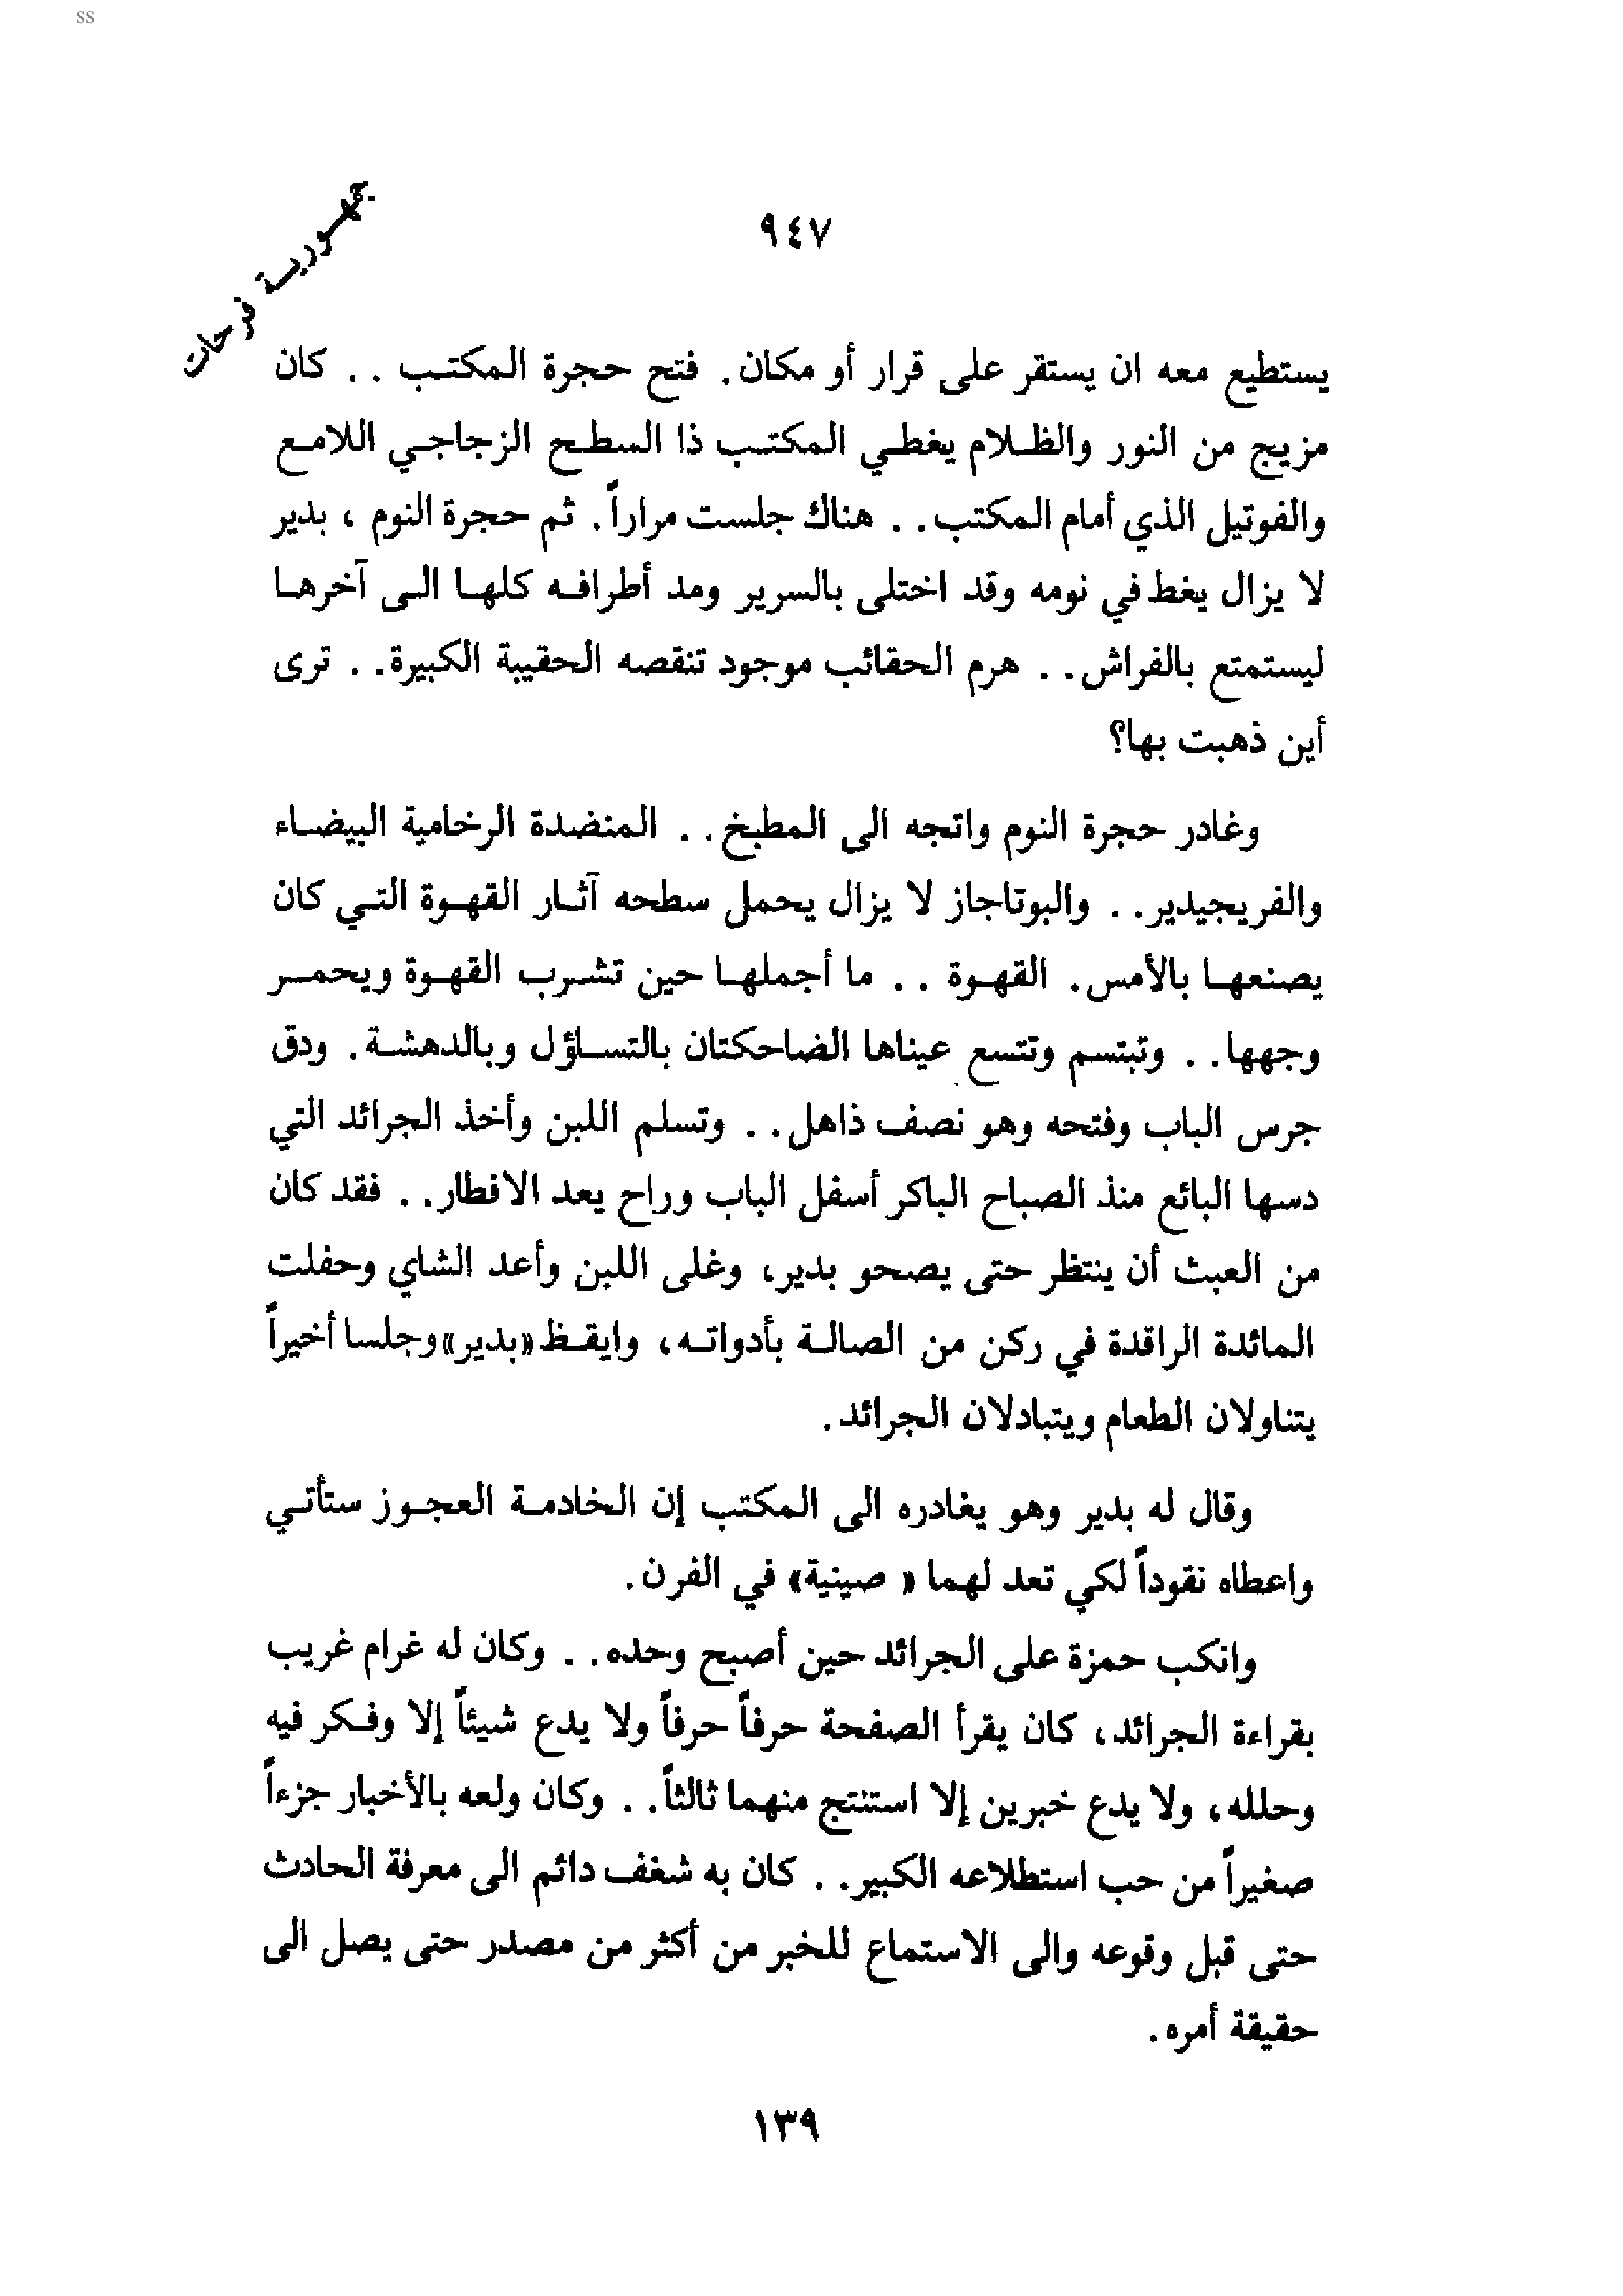 ss
جمهورية فرحات
٩٤٧
يستطيع معه ان يستقر على قرار أو مكان. فتح حجرة المكتب . . كان
مزيج من النور والظلام يغطي المكتب ذا السطح الزجاجي اللامع
والفوتيل الذي أمام المكتب. . هناك جلست مراراً. ثم حجرة النوم ، بدير
لا يزال يغط في نومه وقد اختلى بالسرير ومد أطرافه كلها الى آخرها
ليستمتع بالفراش. . هرم الحقائب موجود تنقصه الحقيبة الكبيرة. . ترى
أين ذهبت بها؟
وغادر حجرة النوم واتجه الى المطبخ. . المنضدة الرخامية البيضاء
والفريجيدير. . والبوتاجاز لا يزال يحمل سطحه آثار القهوة التي كان
يصنعها بالأمس. القهوة . . ما أجملها حين تشرب القهوة ويحمر
وجهها. . وتبتسم وتتسع عيناها الضاحكتان بالتساؤل وبالدهشة. ودق
جرس الباب وفتحه وهو نصف ذاهل. . وتسلم اللبن وأخذ الجرائد التي
دسها البائع منذ الصباح الباكر أسفل الباب وراح يعد الافطار. . فقد كان
من العبث أن ينتظر حتى يصحو بدير، وغلى اللبن وأعد الشاي وحفلت
المائدة الراقدة في ركن من الصالة بأدواته، وايقظ «بدير» وجلسا أخيراً
يتناولان الطعام ويتبادلان الجرائد.
وقال له بدير وهو يغادره الى المكتب إن الخادمة العجوز ستأتي
واعطاه نقوداً لكي تعد لهما « صينية» في الفرن.
وانكب حمزة على الجرائد حين أصبح وحده. . وكان له غرام غريب
بقراءة الجرائد، كان يقرأ الصفحة حرفاً حرفاً ولا يدع شيئاً إلا وفكر فيه
وحلله، ولا يدع خبرين إلا استنتج منهما ثالثاً. . وكان ولعه بالأخبار جزءاً
صغيراً من حب استطلاعه الكبير. . كان به شغف دائم الى معرفة الحادث
حتى قبل وقوعه والى الاستماع للخبر من أكثر من مصدر حتى يصل الى
حقيقة أمره.
١٣٩